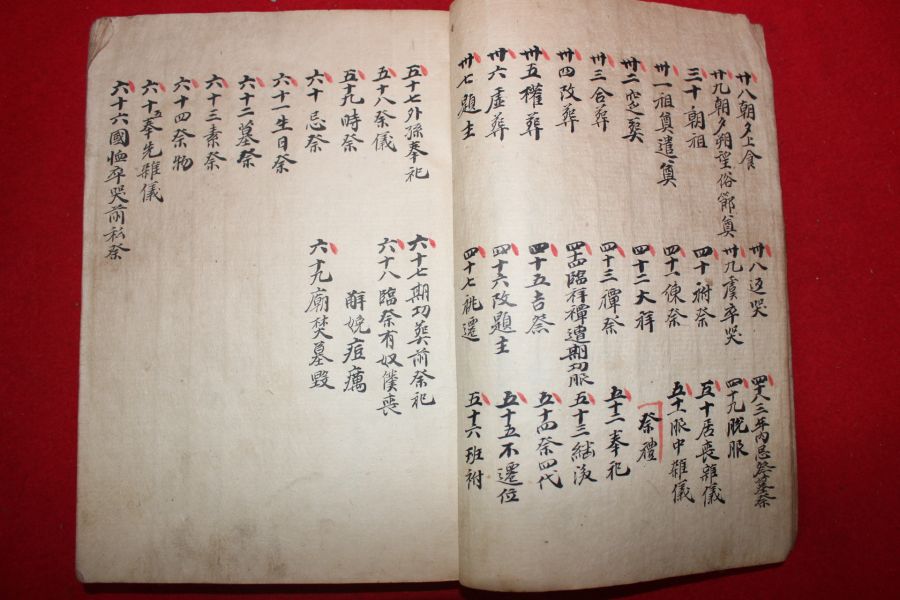 廿八朝夕上食
廿九朝夕朔望俗節奠
三十朝祖
卅一祖奠遣奠
卅二窆葬
卅三合葬
卅四改葬
卅五權葬
卅六虛葬
卅七題主
卅八返哭
卅九虞卒哭
四十祔祭
四十一練祭
四十二大祥
四十三禫祭
四十四臨祥禫遭期功服
四十五吉祭
四十六改題主
四十七祧遷
四十八三年內忌祭墓祭
四十九脫服
五十居喪雜儀
五十一服中雜儀
祭禮
五十二奉祀
五十三繼後
五十四祭四代
五十五不遷位
五十六班祔
五十七外孫奉祀
五十八祭儀
五十九時祭
六十忌祭
六十一生日祭
六十二墓祭
六十三素祭
六十四祭物
六十五奉先雜儀
六十六國恤卒哭前私祭
六十七期功葬前祭祀
六十八臨祭有奴僕喪
解娩痘癘
六十九廟焚墓毀